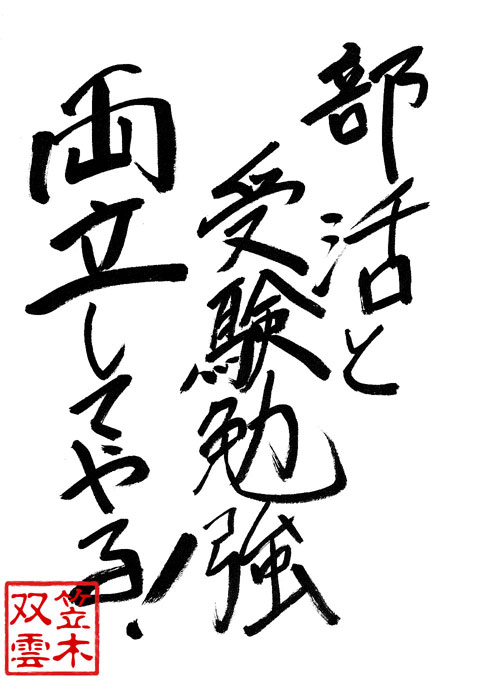 部活と
受験勉強
両立してやる!
笠木
双雲